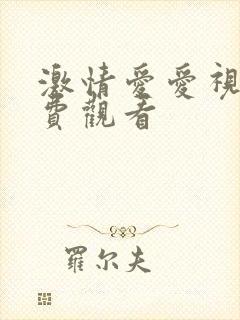 激情愛愛視
費觀看
羅尔夫